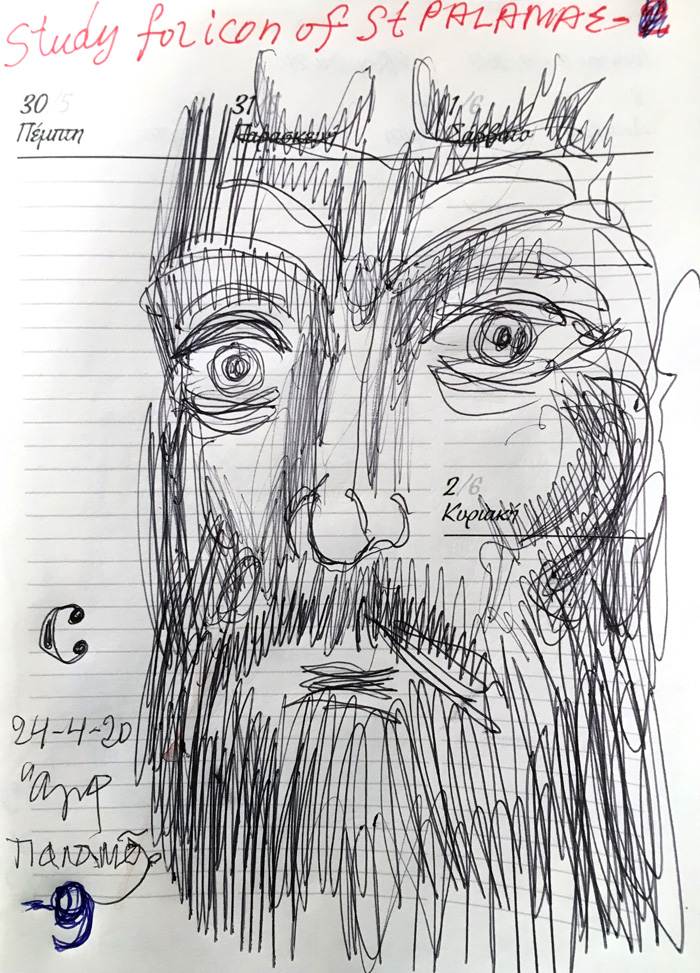 Study for icon of St PALAMAS
30/5
Πέμπτη
31
Παρασκευή
1/6
Σάββατο
2/6
Κυριακή
24-4-20
Παλαμᾶς